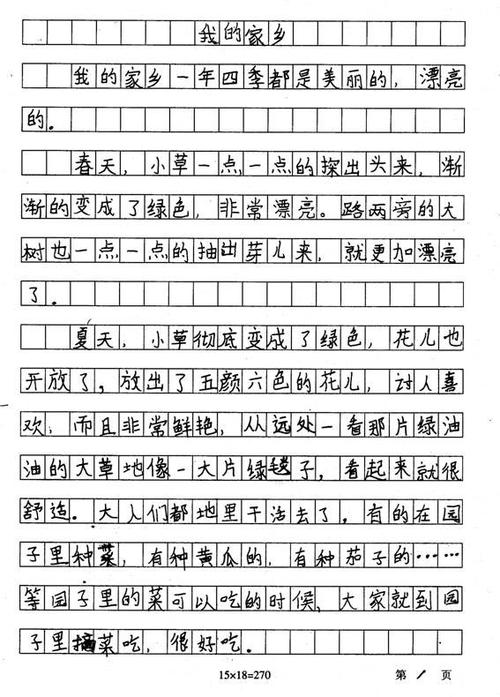 我的家乡
我的家乡一年四季都是美丽的，漂亮
的.
春天，小草一点一点的探出头来，渐
渐的变成了绿色，非常漂亮。路两旁的大
树也一点一点的抽出芽儿来，就更加漂亮
了.
夏天，小草彻底变成了绿色，花儿也
开放了，放出了五颜六色的花儿，讨人喜
欢，而且非常鲜艳，从远处一看那片绿油
油的大草地像一大片绿毯子，看起来就很
舒适。大人们都地里干活去了，有的在园
子里种菜，有种黄瓜的，有种茄子的……
等园子里的菜可以吃的时候，大家就到园
子里摘菜吃，很好吃.
15×18=270 第 1 页